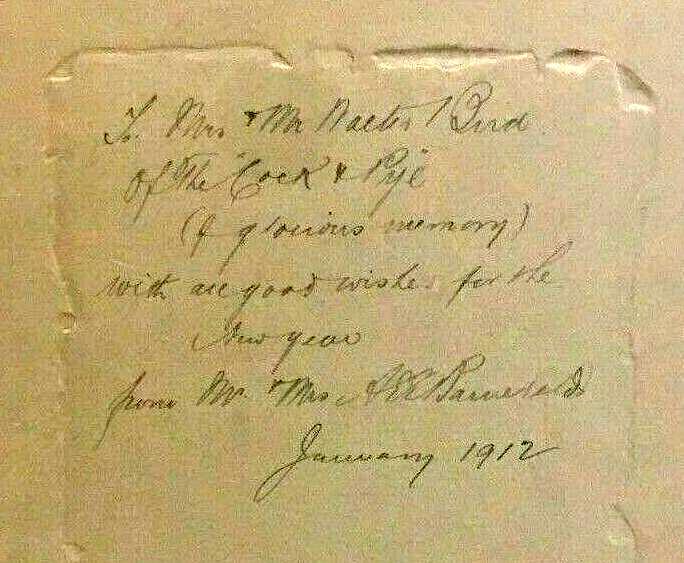 To Mrs & Mr Walter Bird
of The "Cock & Pye"
(of glorious memory)
with all good wishes for the
New year
from Mr. & Mrs
January 1912